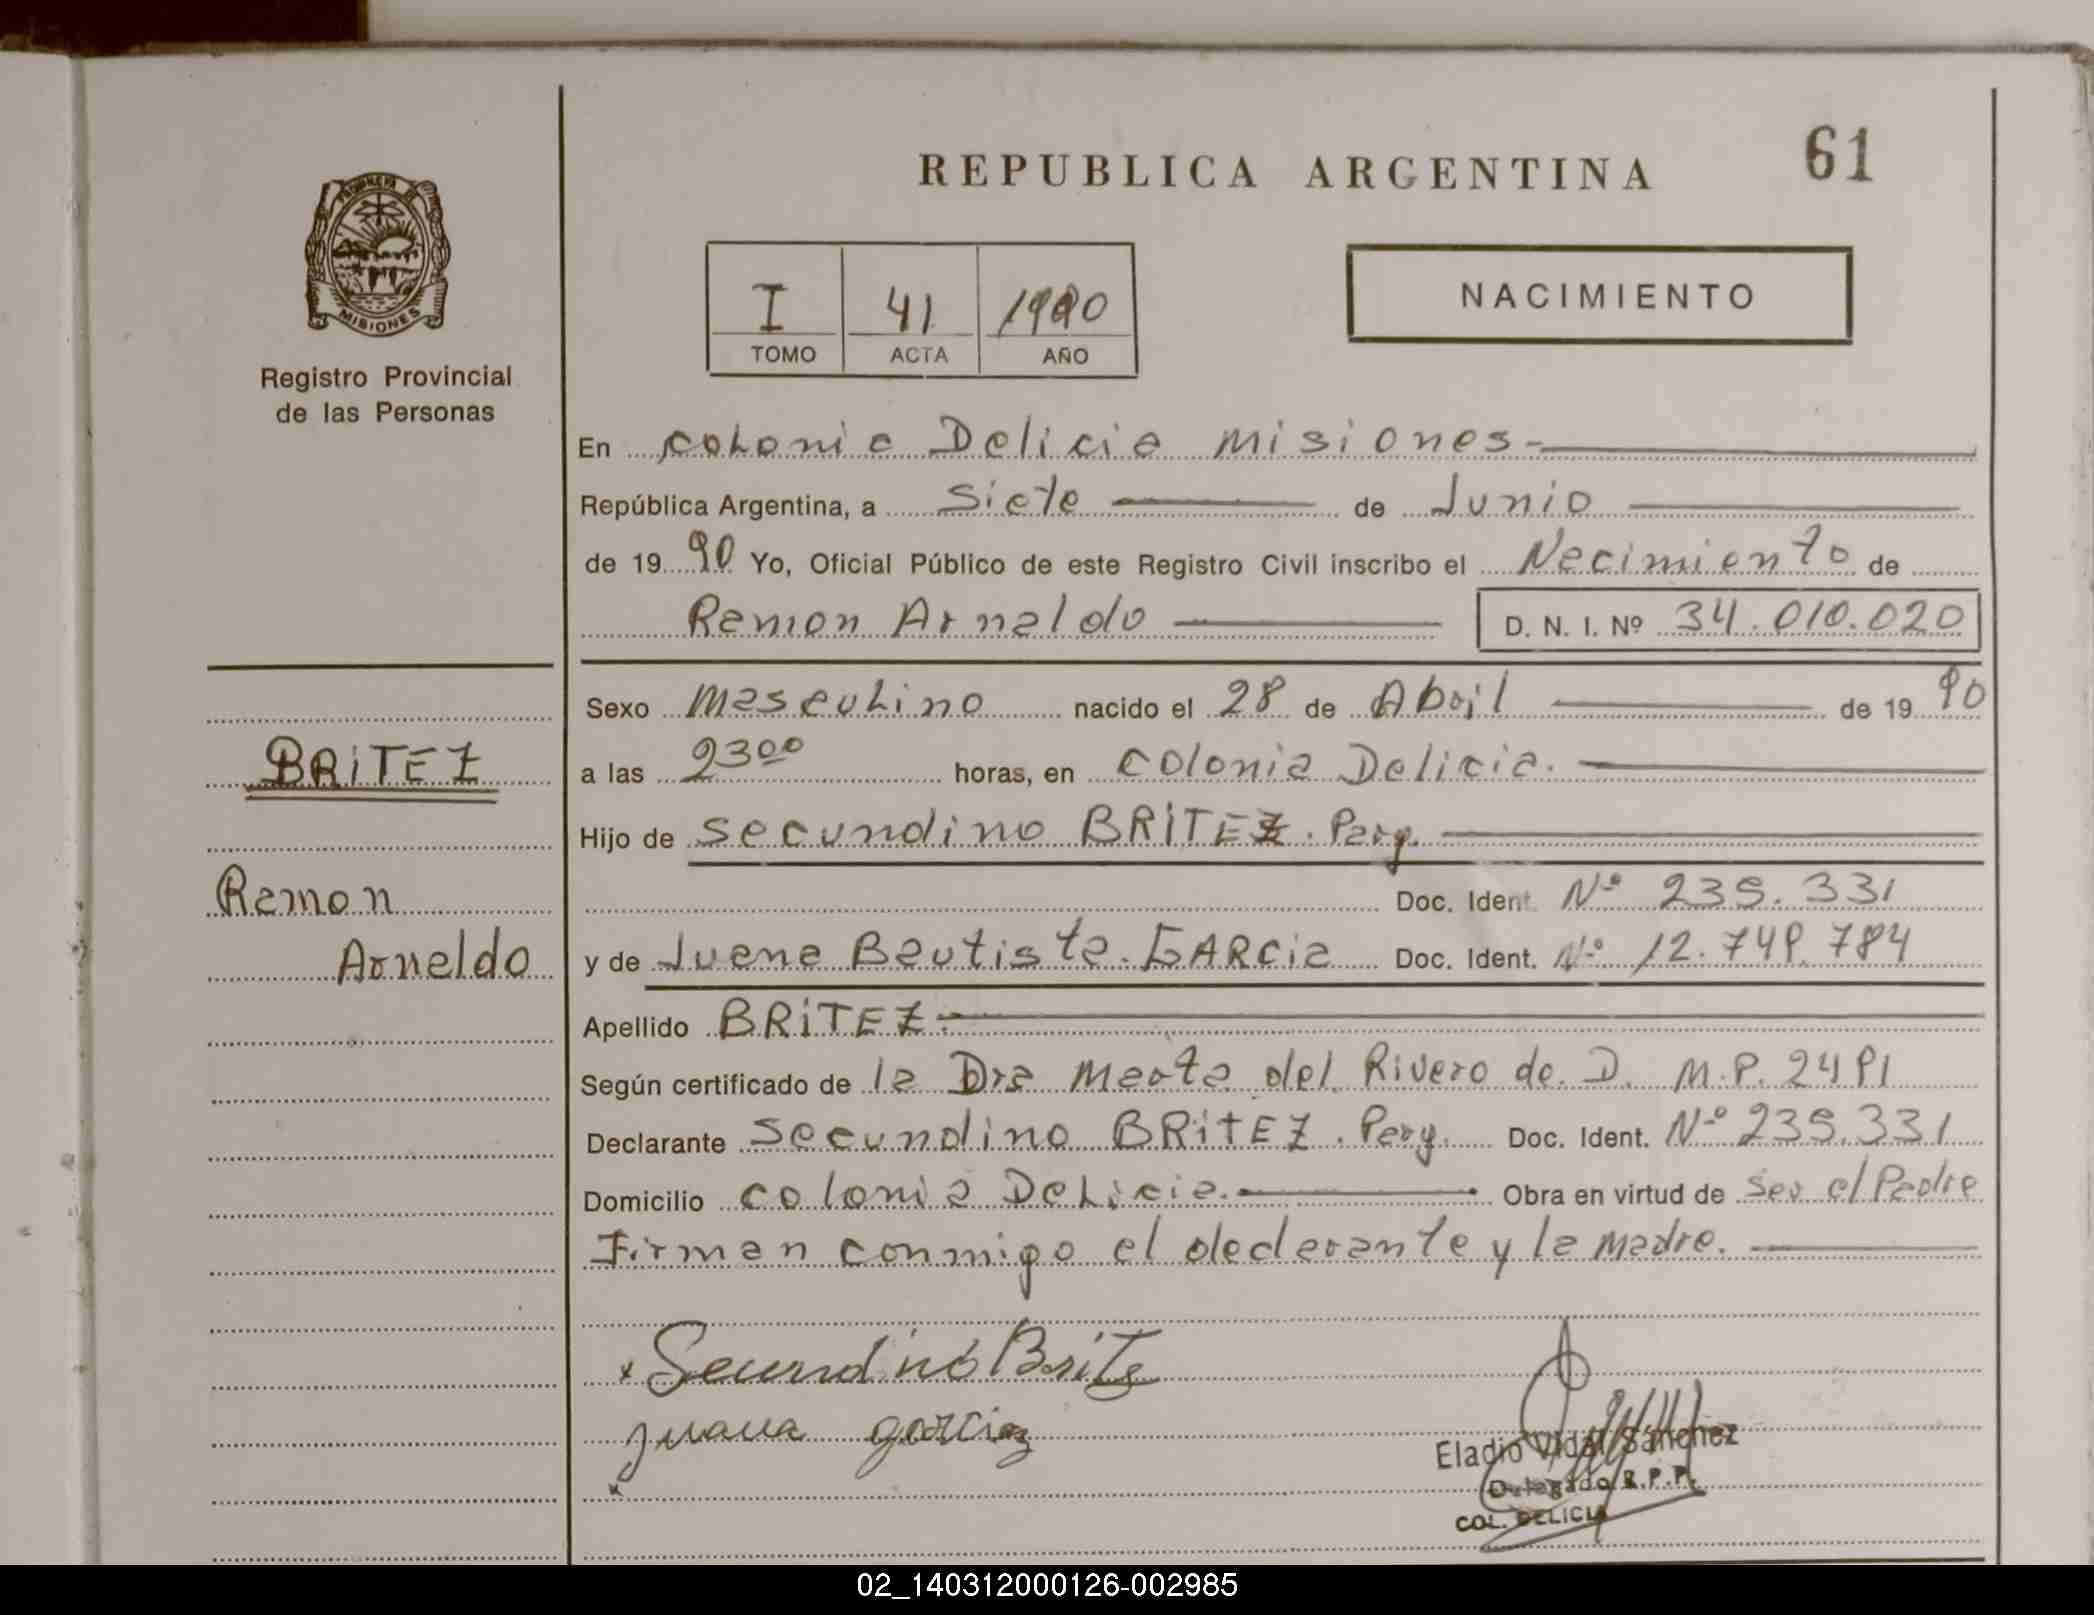 REPUBLICA ARGENTINA
61
PROVINCIA DE
MISIONES
Registro Provincial
de las Personas
I 41 1990
TOMO ACTA AÑO
NACIMIENTO
En Colonia Delicia Misiones-
República Argentina, a Siete de Junio
de 19 90 Yo, Oficial Público de este Registro Civil inscribo el Nacimiento de
Ramon Arnaldo D. N. I. Nº 34.010.020
Sexo Masculino nacido el 28 de Abril de 19 90
a las 23 00 horas, en Colonia Delicia.
Hijo de Secundino BRITEZ. Parg.
Doc. Ident. Nº 235.331
y de Juana Bautista. GARCIA Doc. Ident. Nº 12.749.784
Apellido BRITEZ.
Según certificado de la Dra Marta del Rivero de D. M.P. 2491
Declarante Secundino BRITEZ. Parg. Doc. Ident. Nº 235.331
Domicilio Colonia Delicia. Obra en virtud de Ser el Padre
Firman conmigo el declarante y la madre.
BRITEZ
Ramon
Arnaldo
x Secundino Brite
juana garcia
x
Eladio Vidal Sanchez
Delegado R.P.P.
COL. DELICIA
02_140312000126-002985